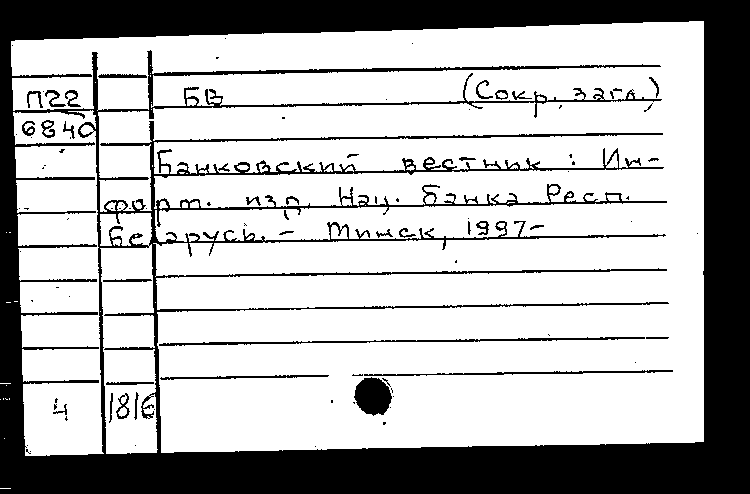 П22 БВ (Сокр. загл.)
6840
Банковский вестник : Ин-
форм. изд. Нац. банка Респ.
Беларусь. - Минск, 1997-
4 1816